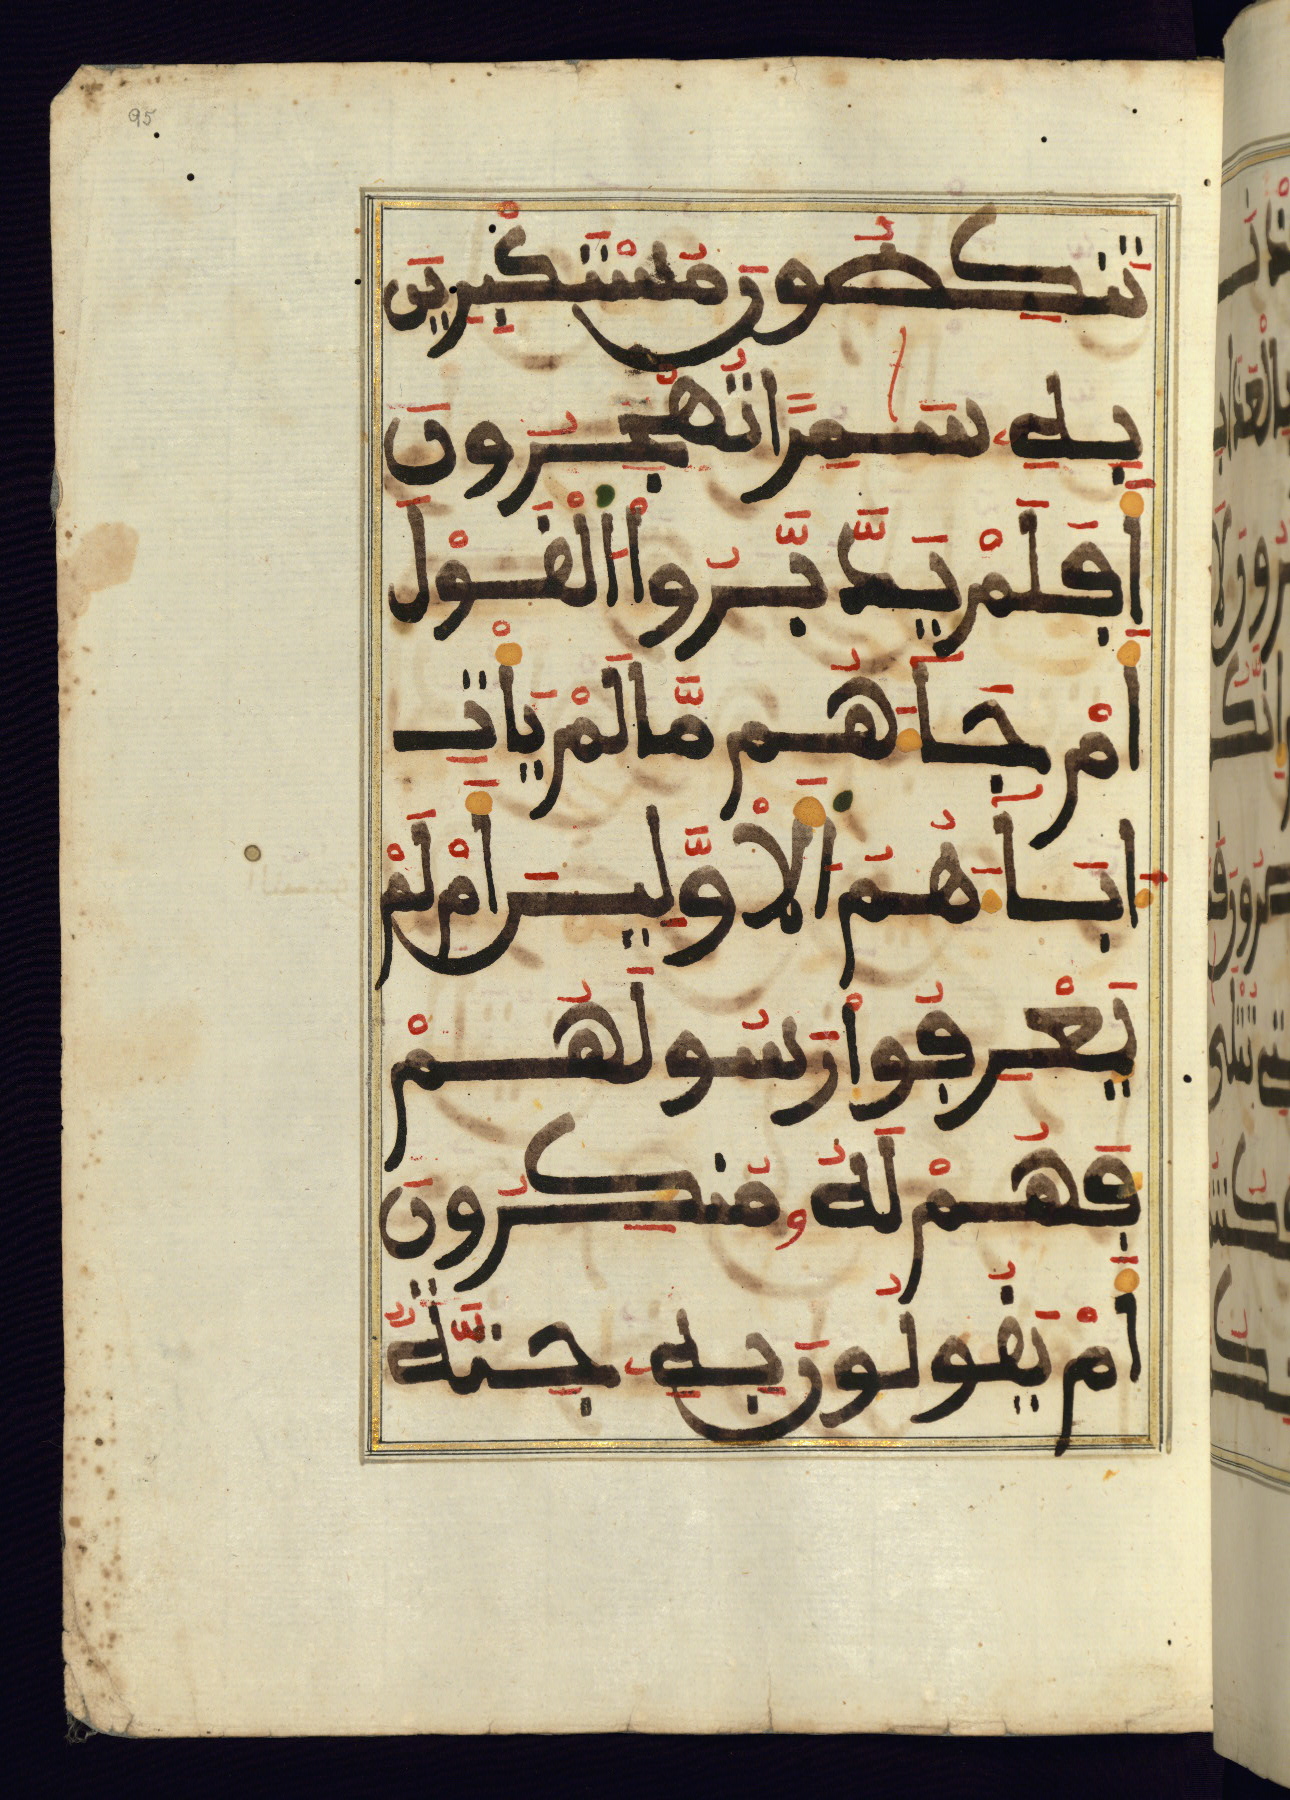 95
تَنكِصُونَ مُسْتَكْبِرِينَ
بِهِۦ سَٰمِرًا تَهْجُرُونَ
أَفَلَمْ يَدَّبَّرُوا۟ الْقَوْلَ
أَمْ جَآءَهُم مَّا لَمْ يَأْتِ
ءَابَآءَهُمُ الْأَوَّلِينَ أَمْ لَمْ
يَعْرِفُوا۟ رَسُولَهُمْ
فَهُمْ لَهُۥ مُنكِرُونَ
أَمْ يَقُولُونَ بِهِۦ جِنَّةٌ